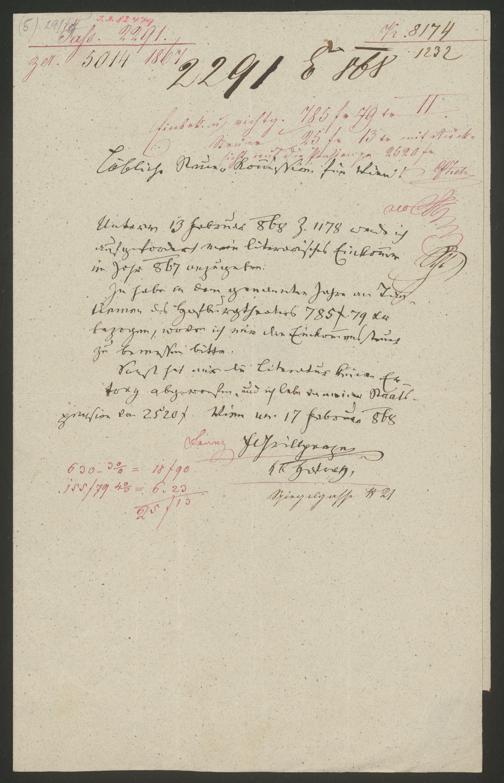 5) 29/
I.N. 82479
Fasz. 2291.
5014 1867
Nr. 8174
1232
2291 E 868
785 fr 79 kr II
Steuer 25 fr 13 kr
2520 fr
Löbliche Steuer Komission für Wien!
Unterm 13 Februar 868 Z. 1178 werde ich
aufgefordert mein literarisches Einkommen
im Jahr 867 anzugeben.
Ich habe in dem genannten Jahre an Tan-
tiemen des Hofburgtheaters 785 f 79 kr
bezogen, wovon ich mir die Einkommensteuer
zu bemessen bitte.
Sonst hat mir die Literatur keinen Er-
trag abgeworfen, und ich lebe von meiner Staats-
pension von 2520 f. Wien am 17 Februar 868
FGrillparzer
kk Hofrath,
Spiegelgasse N 21
630 - 3% = 18/90
155/79 4% = 6.23
25/13